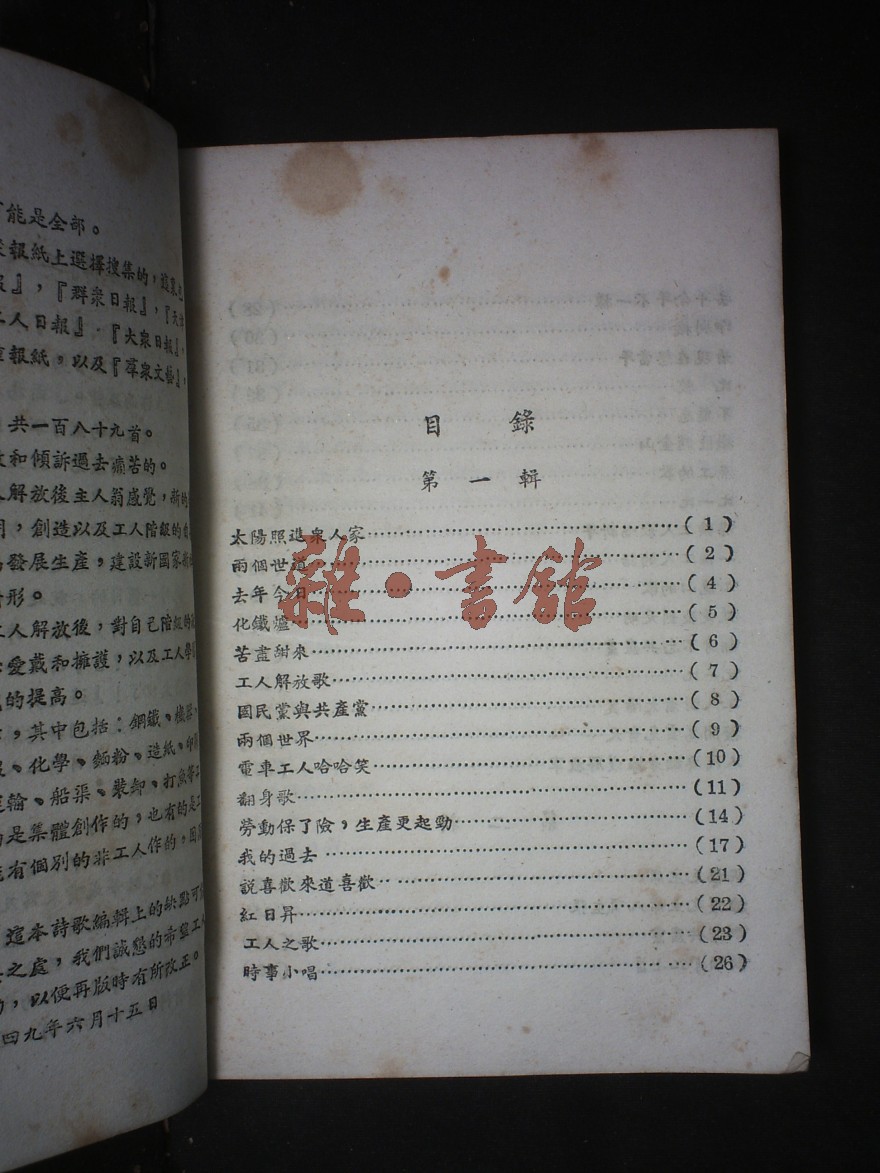 能是全部。
報紙上選擇搜集的，
報』，『群衆日報』，『天
工人日報』·『大衆日報』，
報紙，以及『羣衆文藝』，
共一百八十九首。
和傾訴過去痛苦的。
解放後主人翁感覺，新的
創造以及工人階級的
發展生產，建設新國家
形。
工人解放後，對自己階級的
愛戴和擁護，以及工人學
的提高。
，其中包括：鋼鐵、機器、
、化學、麵粉、造紙、印
輪、船渠、裝卸、打魚等
的是集體創作的，也有的是工
有個別的非工人作的，因
這本詩歌編輯上的缺點可
之處，我們誠懇的希望工人
，以便再版時有所改正。
四九年六月十五日
目 錄
第 一 輯
太陽照進衆人家……(1)
兩個世道……(2)
去年今日……(4)
化鐵爐……(5)
苦盡甜來……(6)
工人解放歌……(7)
國民黨與共產黨……(8)
兩個世界……(9)
電車工人哈哈笑……(10)
翻身歌……(11)
勞動保了險，生產更起勁……(14)
我的過去……(17)
説喜歡來道喜歡……(21)
紅日昇……(22)
工人之歌……(23)
時事小唱……(26)
雜·書館